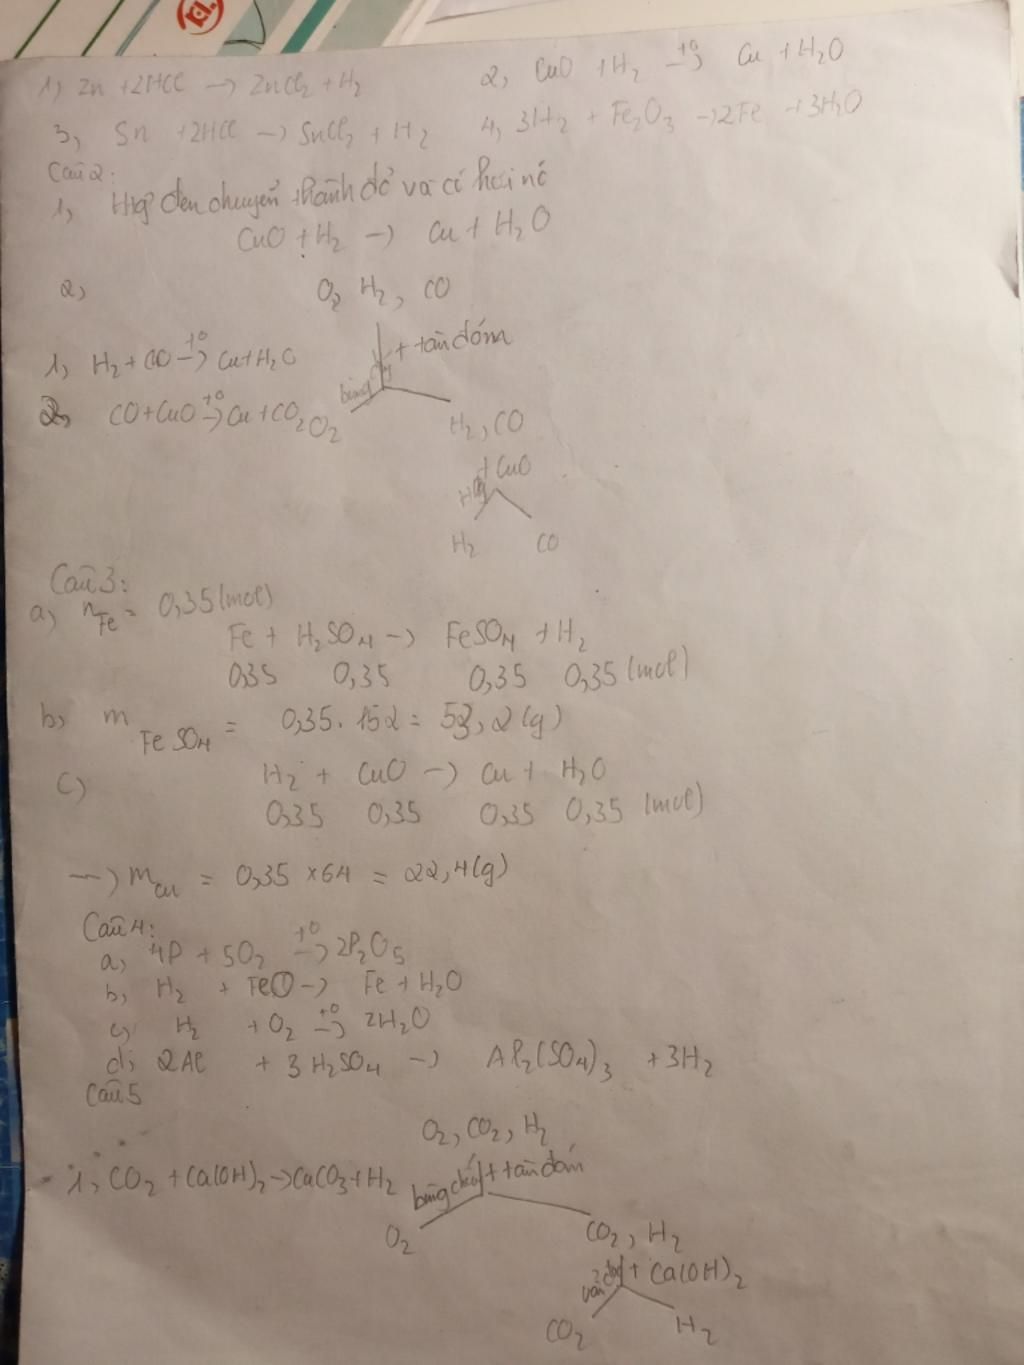 1, Zn + 2HCl → ZnCl2 + H2
2, CuO + H2 t0→ Cu + H2O
3, Sn + 2HCl → SnCl2 + H2
4, 3H2 + Fe2O3 → 2Fe + 3H2O
Câu 2:
1, Htg đen chuyển thành đỏ và có hơi nc
CuO + H2 → Cu + H2O
2, O2 H2, CO
+ tàn đóm
1, H2 + CO t0→ Cu + H2O
bùng cháy
2, CO + CuO t0→ Cu + CO2
O2
H2, CO
+ CuO
H2 CO
Câu 3:
a, nFe = 0,35 (mol)
Fe + H2SO4 → FeSO4 + H2
0,35 0,35 0,35 0,35 (mol)
b, m FeSO4 = 0,35. 152 = 53,2 (g)
c) H2 + CuO → Cu + H2O
0,35 0,35 0,35 0,35 (mol)
→ mCu = 0,35 × 64 = 22,4 (g)
Câu 4:
a, 4P + 5O2 t0→ 2P2O5
b, H2 + FeO → Fe + H2O
c, H2 + O2 t0→ 2H2O
d, 2Al + 3H2SO4 → Al2(SO4)3 + 3H2
Câu 5
O2, CO2, H2
1, CO2 + Ca(OH)2 → CaCO3 + H2
bùng cháy + tàn đóm
O2
CO2, H2
vẩn đục + Ca(OH)2
CO2 H2